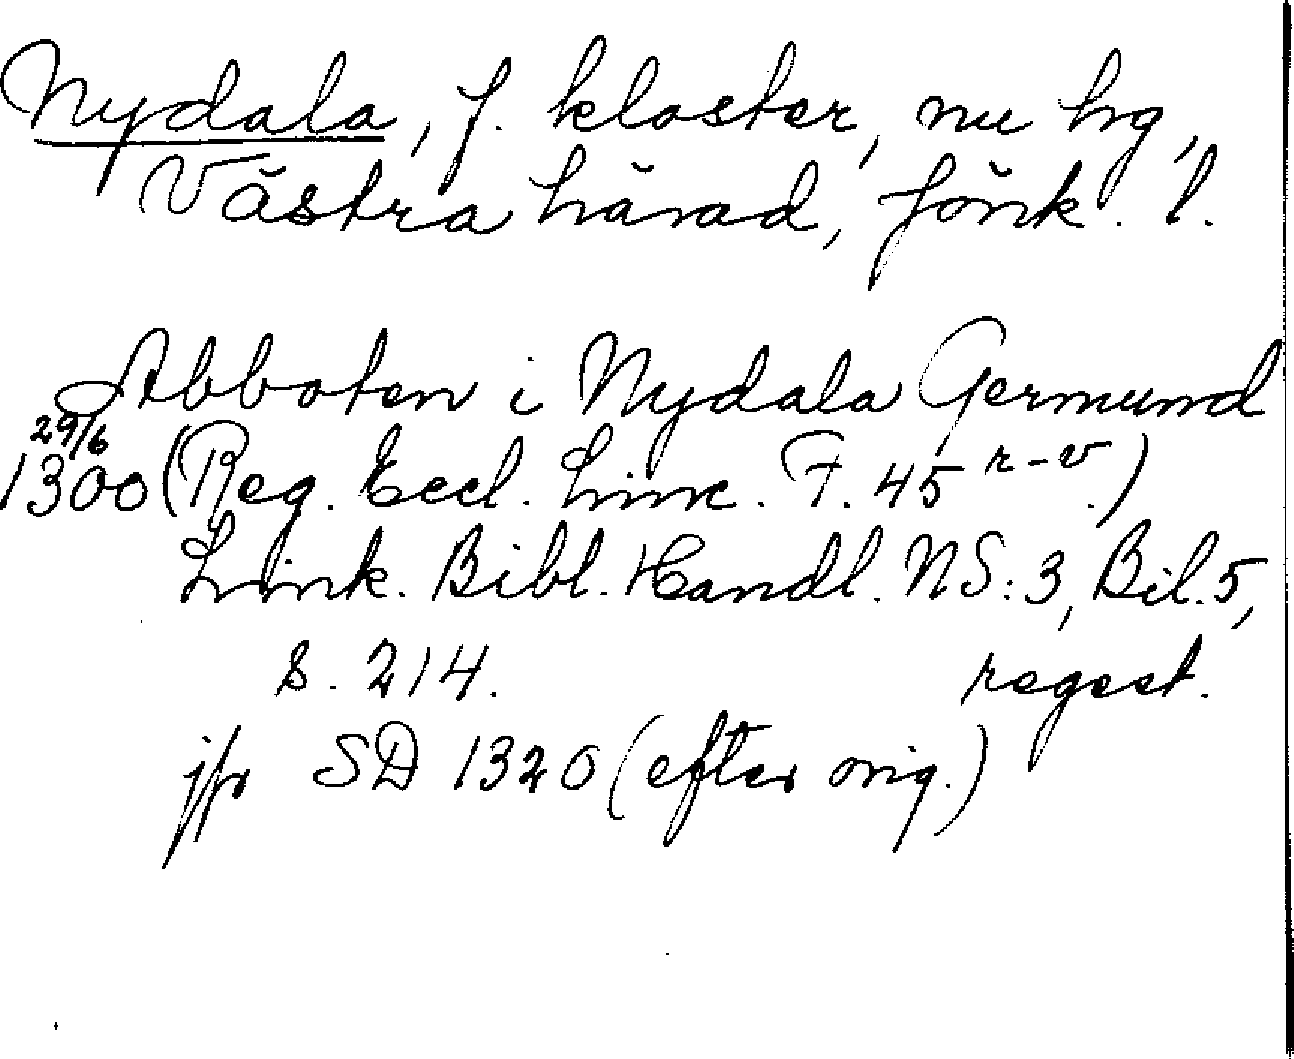 Nydala, f. kloster, nu hg,
Västra härad, Jönk. l.
Abboten i Nydala Germund
29/6
1300 (Reg. Eccl. Linc. F. 45 r-v.)
Link. Bibl. Handl. NS: 3, Bil. 5,
s. 214. regest.
jfr SD 1320 (efter orig.)